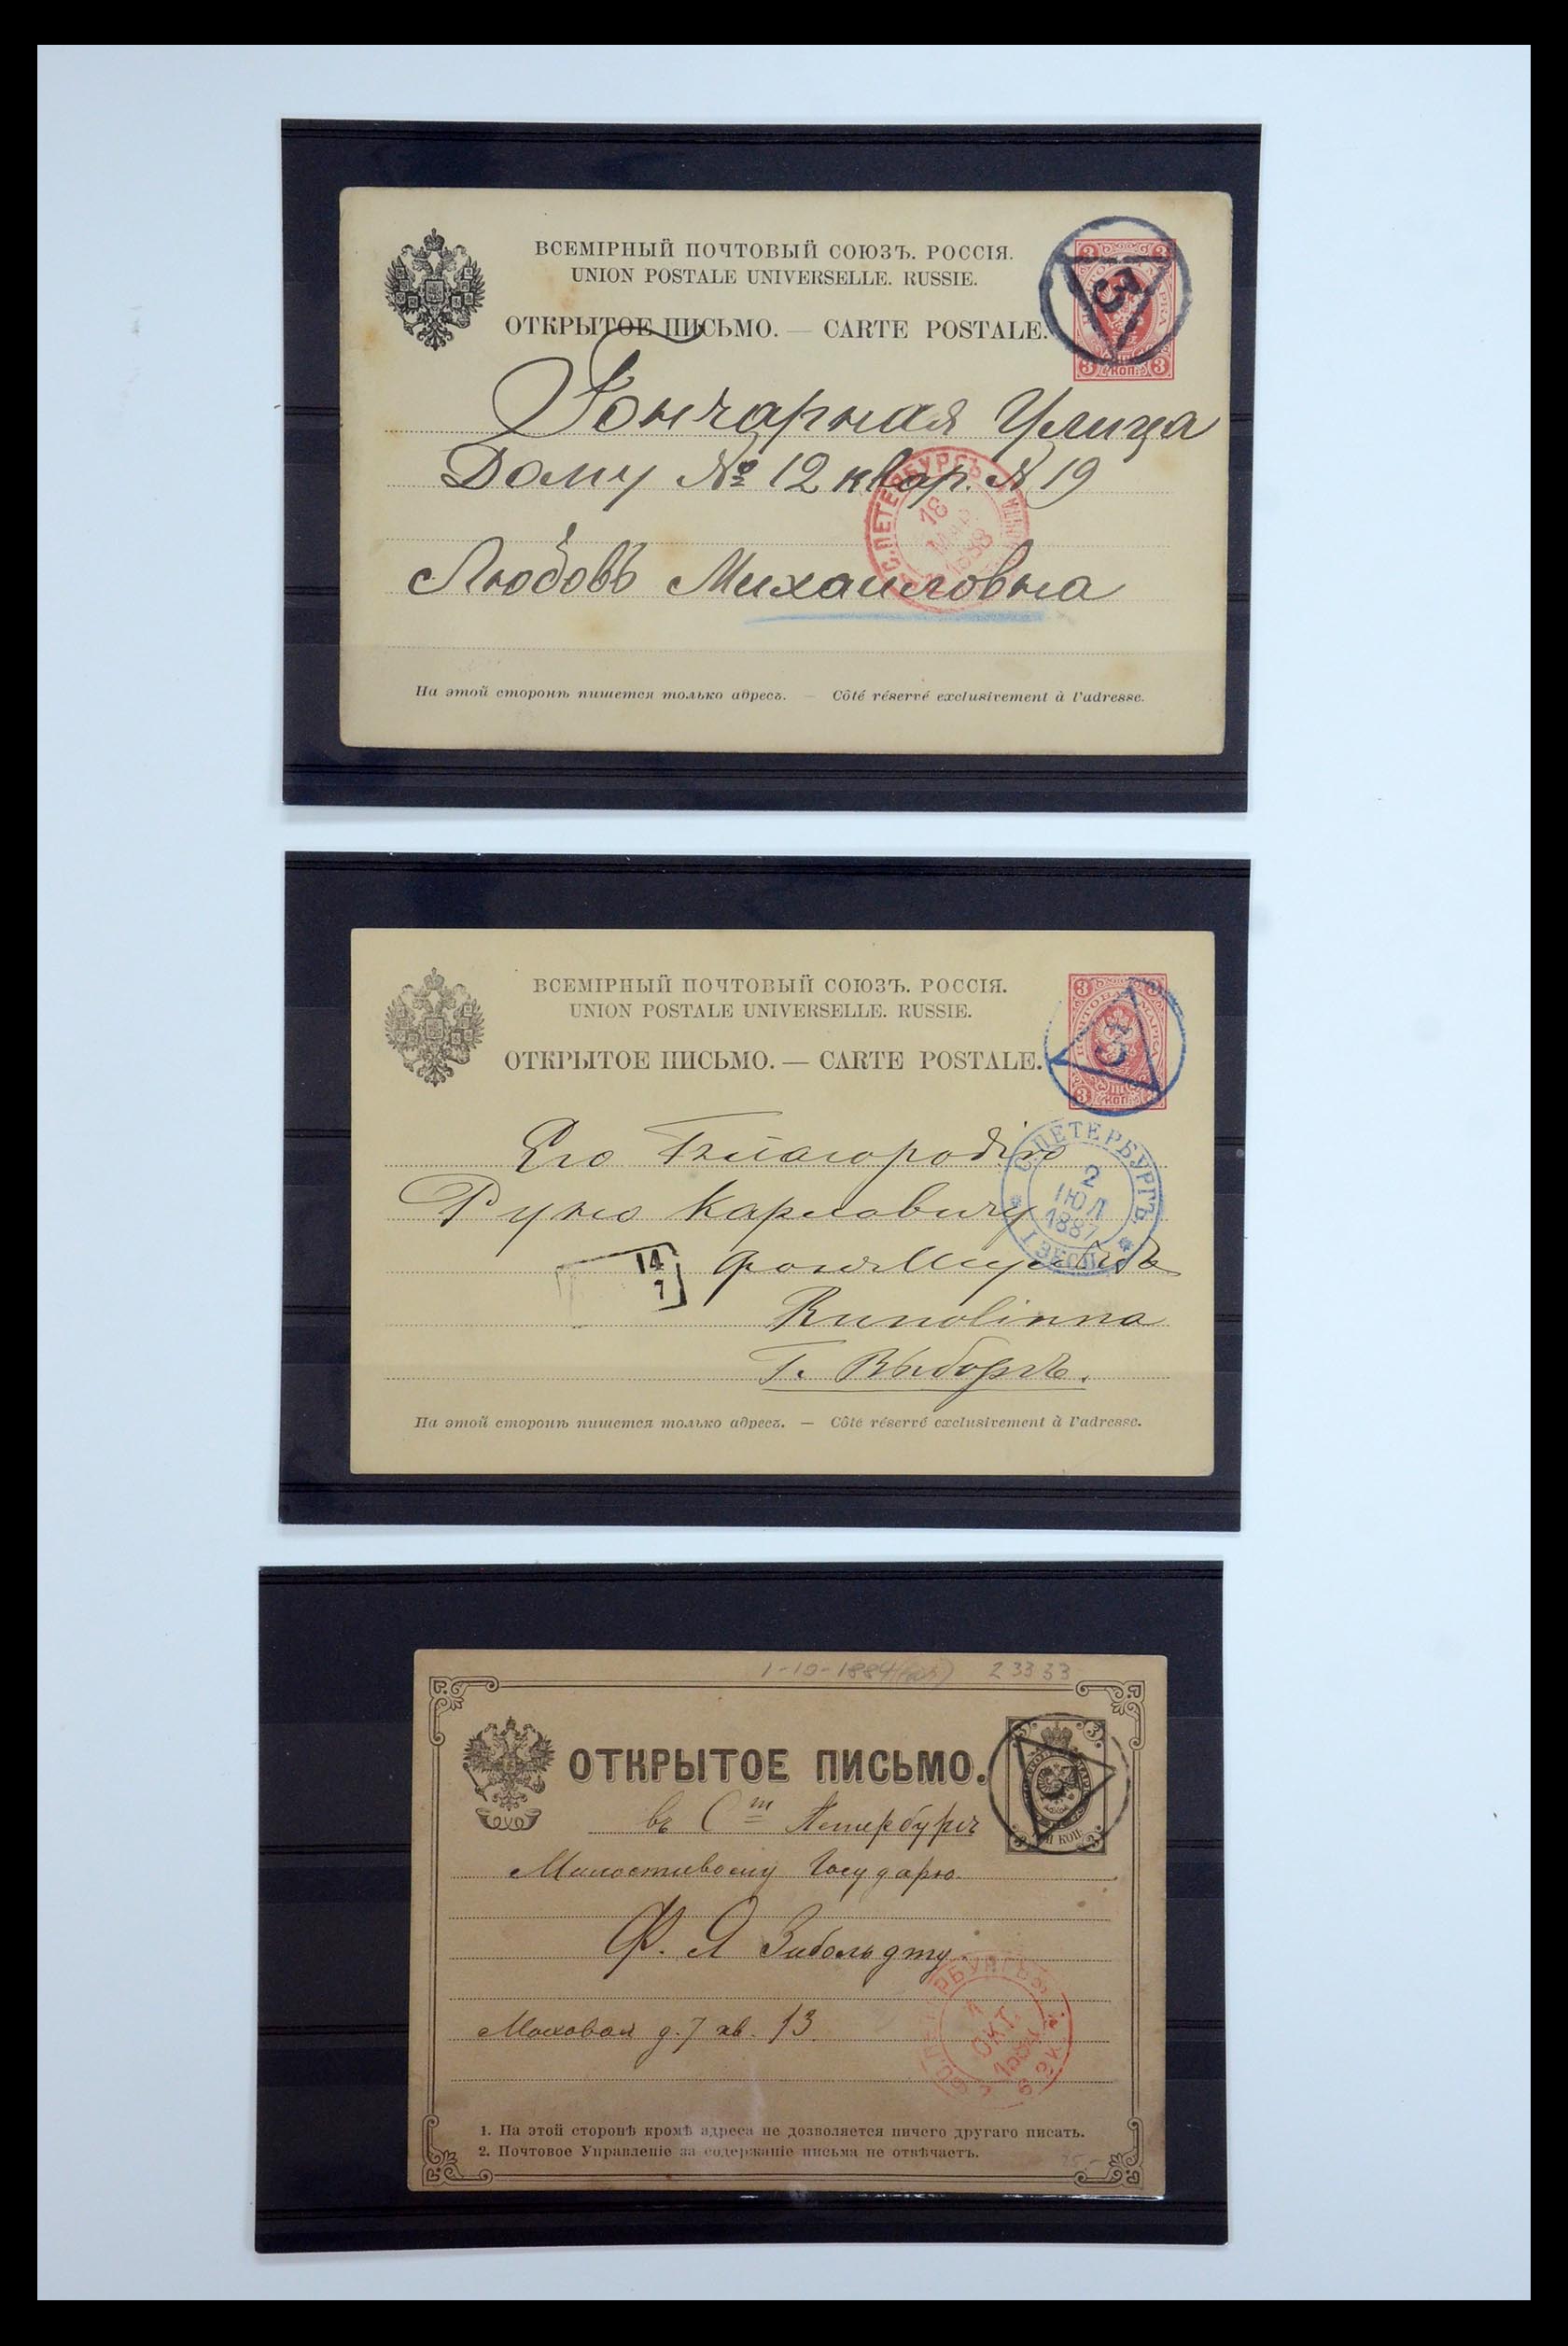 ВСЕМІРНЫЙ ПОЧТОВЫЙ СОЮЗЪ. РОССІЯ.
UNION POSTALE UNIVERSELLE. RUSSIE.
ОТКРЫТОЕ ПИСЬМО. — CARTE POSTALE.
3 3
3
3 КОП. 3
Гончарная Улица
Дому № 12 квар. N 19
С.ПЕТЕРБУРГЪ
18
МАР
1888
Любовь Михаиловна
На этой сторонѣ пишется только адресъ. — Côté réservé exclusivement à l'adresse.
ВСЕМІРНЫЙ ПОЧТОВЫЙ СОЮЗЪ. РОССІЯ.
UNION POSTALE UNIVERSELLE. RUSSIE.
ОТКРЫТОЕ ПИСЬМО. — CARTE POSTALE.
3 3
3
3 КОП.
Его Благородію
Руно Карловичу
С.ПЕТЕРБУРГЪ
2
ІЮЛ
1887
14
7
фонъ
Runolinna
Г. Выборгъ.
На этой сторонѣ пишется только адресъ. — Côté réservé exclusivement à l'adresse.
1-10-1884 23333
ОТКРЫТОЕ ПИСЬМО.
3
КОП.
въ С т Петербургъ
Милостивому Государю
Ф. Я Зибольдту
Моховая д. 7 кв. 13.
ОКТ.
1. На этой сторонѣ кромѣ адреса не дозволяется ничего другаго писать.
2. Почтовое Управленіе за содержаніе письма не отвѣчаетъ.